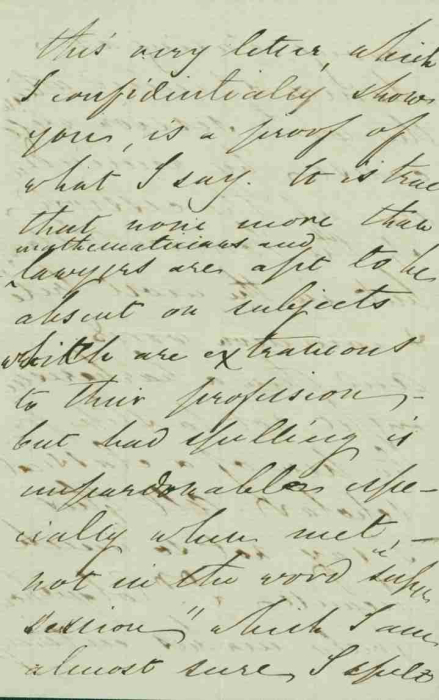 this very letter, which
I confidentially show
you, is a proof of
what I say. It is true
that none more than
mathematicians and
lawyers are apt to be
absent on subjects
which are extraneous
to their profession,—
but bad spelling is
unpardonable espe-
cially when met,—
not in the word "supe
session" which I am
almost sure I spelt